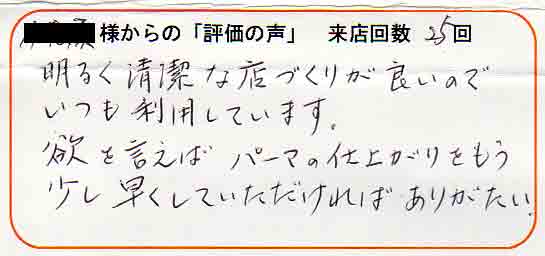 様からの「評価の声」 来店回数 25回
明るく清潔な店づくりが良いので
いつも利用しています。
欲を言えば パーマの仕上がりをもう
少し早くしていただければありがたい。